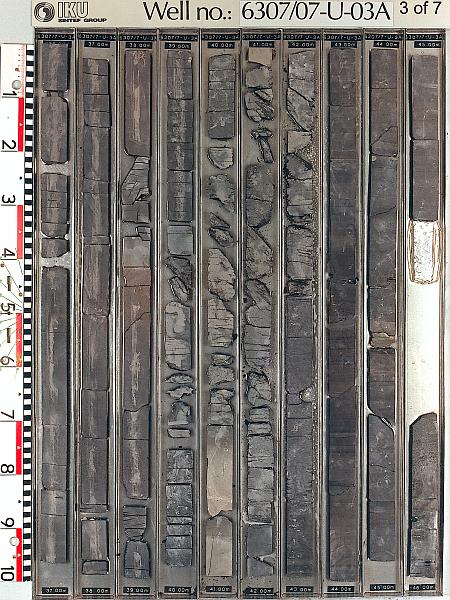 IKU
SINTEF GROUP
Well no.: 6307/07-U-03A 3 of 7
6307/7-U-3A 6307/7-U-3A 6307/7-U-3A 6307/7-U-3A 6307/7-U-3A
37.00m 38.00m 39.00m 40.00m 41.00m 42.00m 43.00m 44.00m 45.00m
1
2
3
4
5
6
7
8
9
10
37.00m 38.00m 39.00m 40.00m 41.00m 42.00m 43.00m 44.00m 45.00m 46.00m